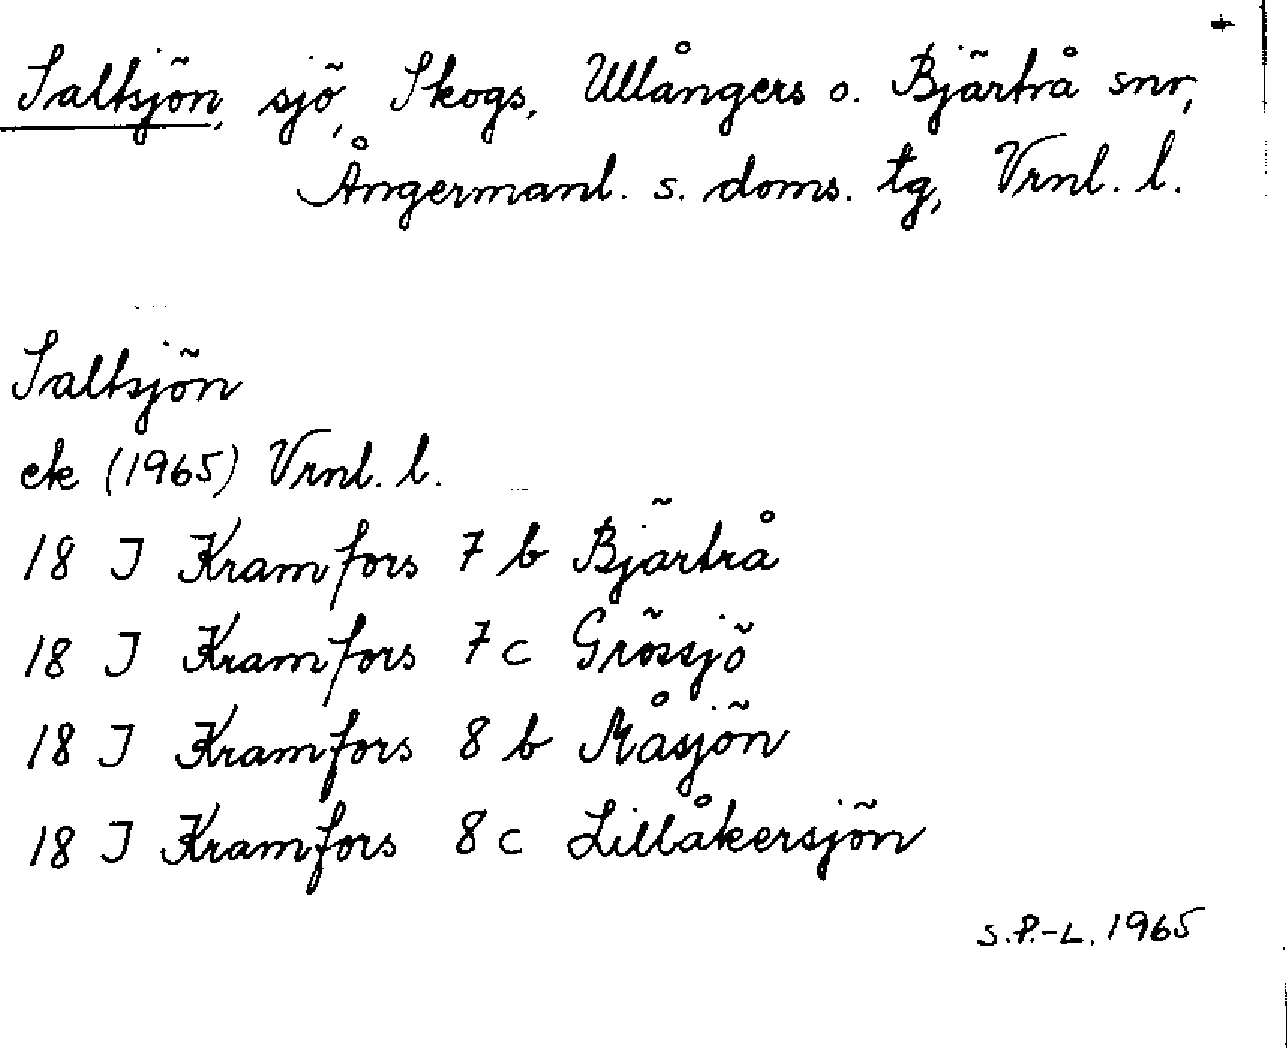 Saltsjön, sjö, Skogs, Ullångers o. Bjärtrå snr,
Ångermanl. s. doms. tg, Vrnl. l.
Saltsjön
ek (1965) Vrnl. l.
18 I Kramfors 7 b Bjärtrå
18 I Kramfors 7 c Grössjö
18 I Kramfors 8 b Måsjön
18 I Kramfors 8 c Lillåkersjön
S.P.-L. 1965